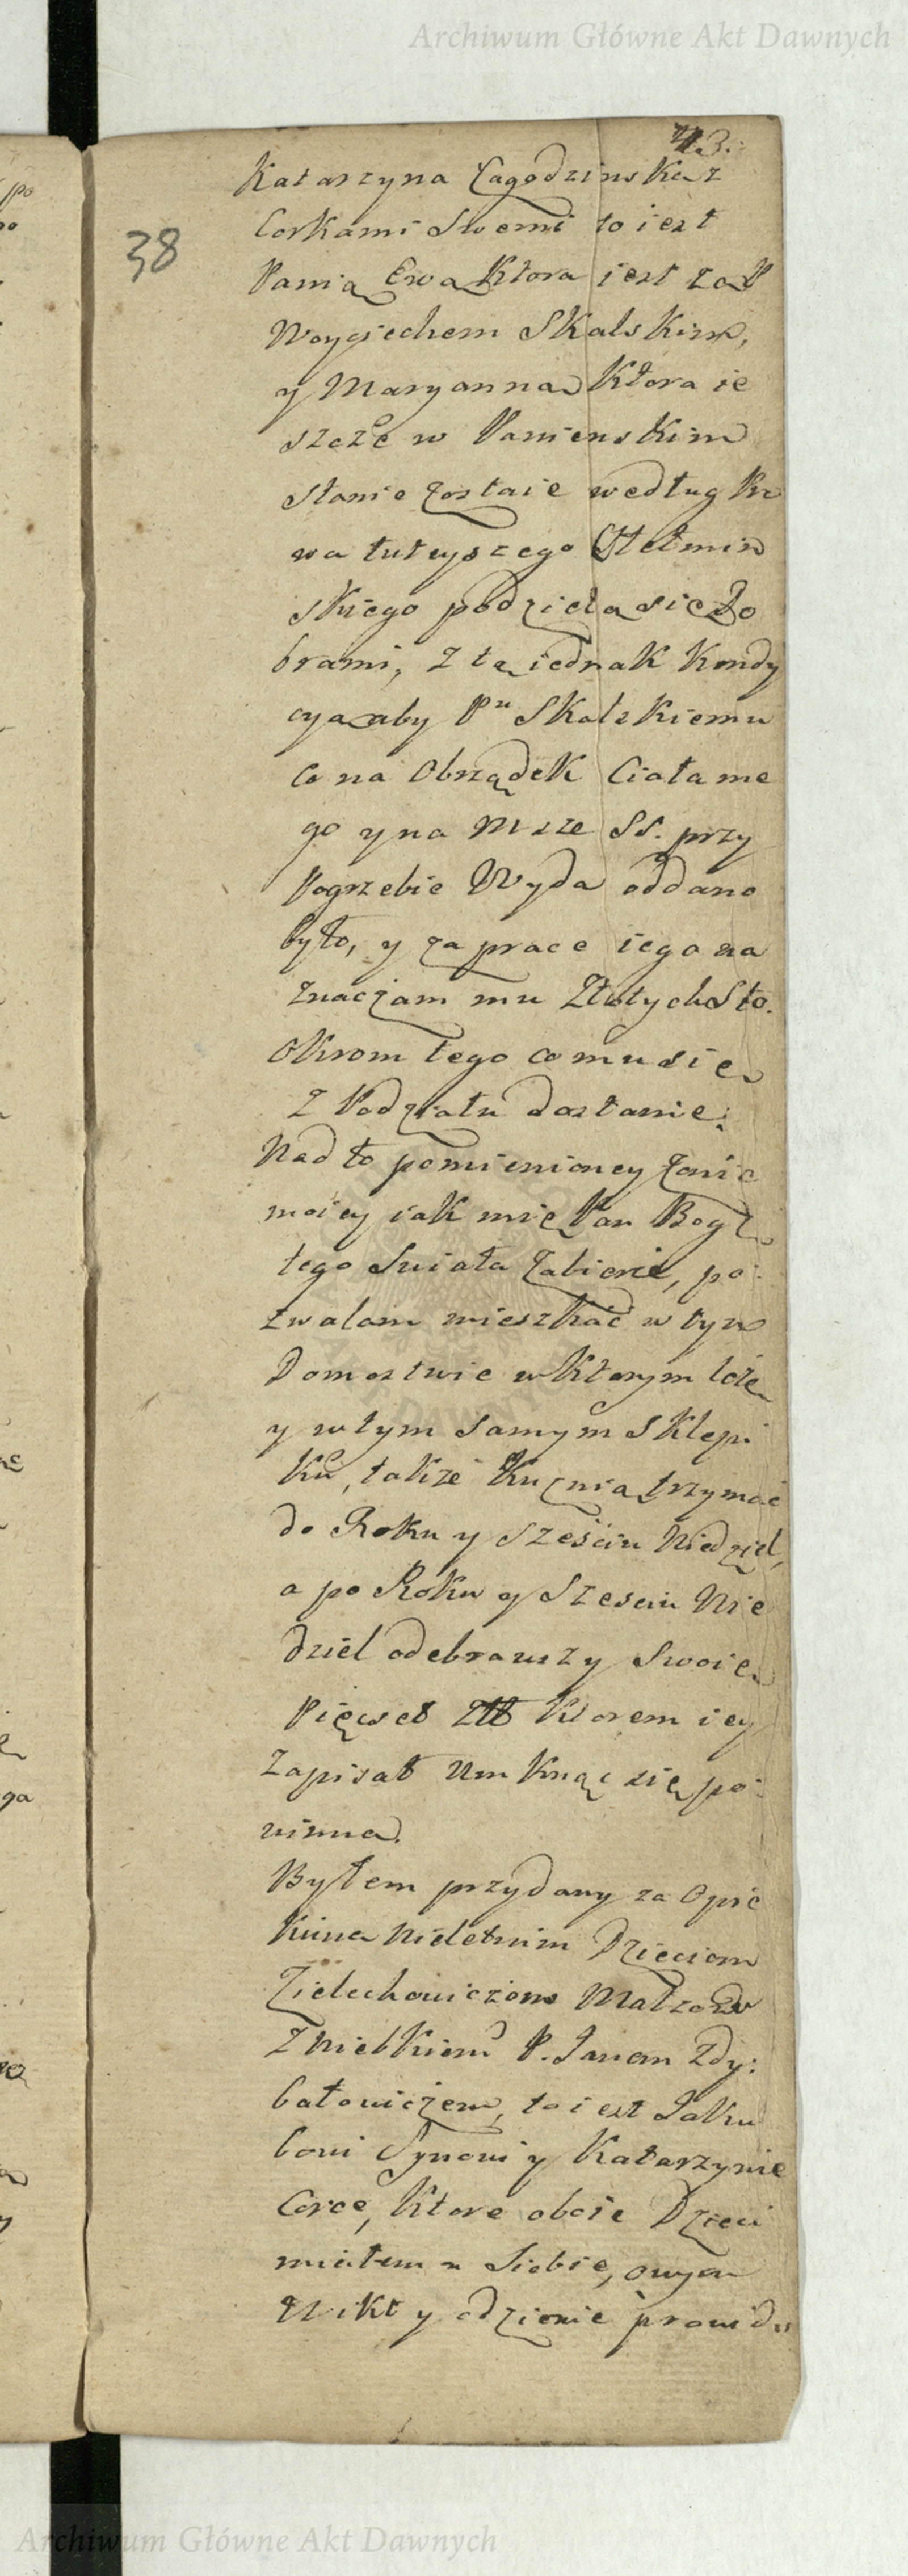 Archiwum Główne Akt Dawnych
43.
38
Katarzyna Łagodzinska z
Corkami Swemi to iest
Panią Ewą Ktora iest za P
Woyciechem Skalskim,
y Maryanna Ktora ie
szcze w Panienskim
stanie zostaie według Pra
wa tuteyszego Chełmin
skiego podziela się Do
brami, z tą iednak Kondy
cyą aby Pu Skalskiemu
co na Obrządek Ciała me
go y na Msze SS. przy
Pogrzebie Wyda oddano
było, y za prace iego na
znaczam mu Złotych Sto.
Okrom tego co mu się
z Podziału dostanie.
Nad to pomienioney Żonie
moiey iak mię Pan Bog z
tego Swiata Zabierie, po:
zwalam mieszkać w tym
Domostwie w Ktorym leże
y w tym samym sklepi
ku, także Kucnią trzymać
do Roku y sześciu Niedziel,
a po Roku y Szesciu Nie
dziel odebrawszy Swoie
Pięcset Ztł Ktorem iey
Zapisał Umknąć się po:
winna.
Byłem przydany za Opie
kuna Nieletnim Dzieciom
Zielechowiczom Małzon
z niebkiem P. Janem Zdy:
bałowiczem, to iest Jaku
bowi Synowi y Katarzynie
Corce, Ktore oboie Dzieci
miałem u Siebie, onym
Wikt y odzienie prowidu
Archiwum Główne Akt Dawnych